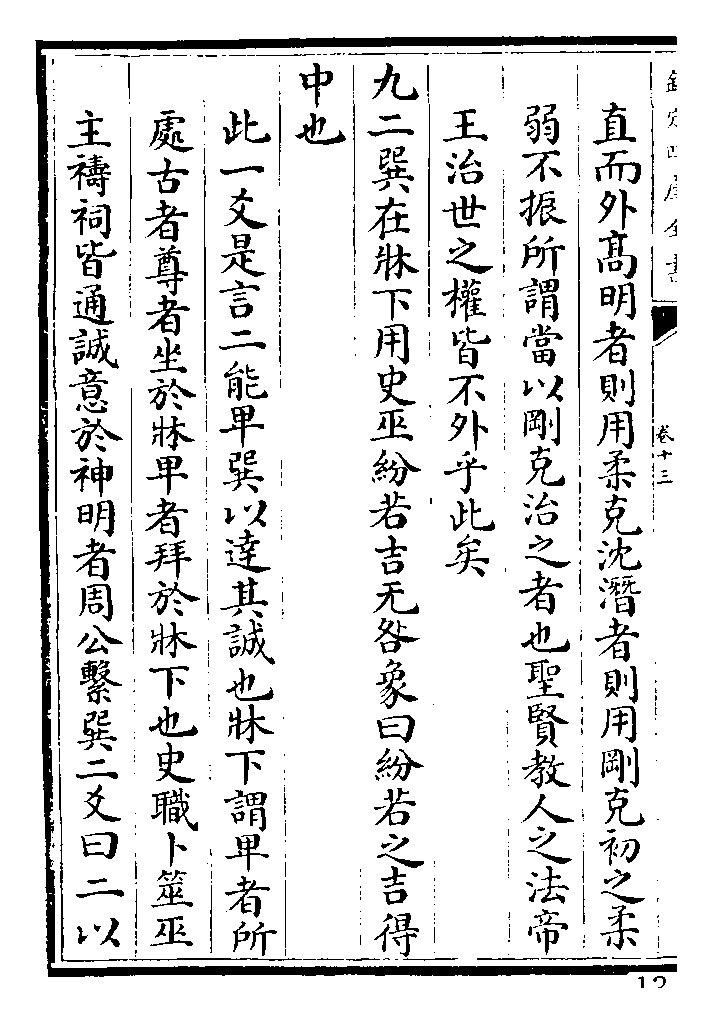 欽定四庫全書
卷十三
直而外髙明者則用柔克沈潛者則用剛克初之柔
弱不振所謂當以剛克治之者也聖賢教人之法帝
王治世之權皆不外乎此矣
九二巽在牀下用史巫紛若吉无咎象曰紛若之吉得
中也
此一爻是言二能卑巽以達其誠也牀下謂卑者所
處古者尊者坐於牀卑者拜於牀下也史職卜筮巫
主禱祠皆通誠意於神明者周公繫巽二爻曰二以